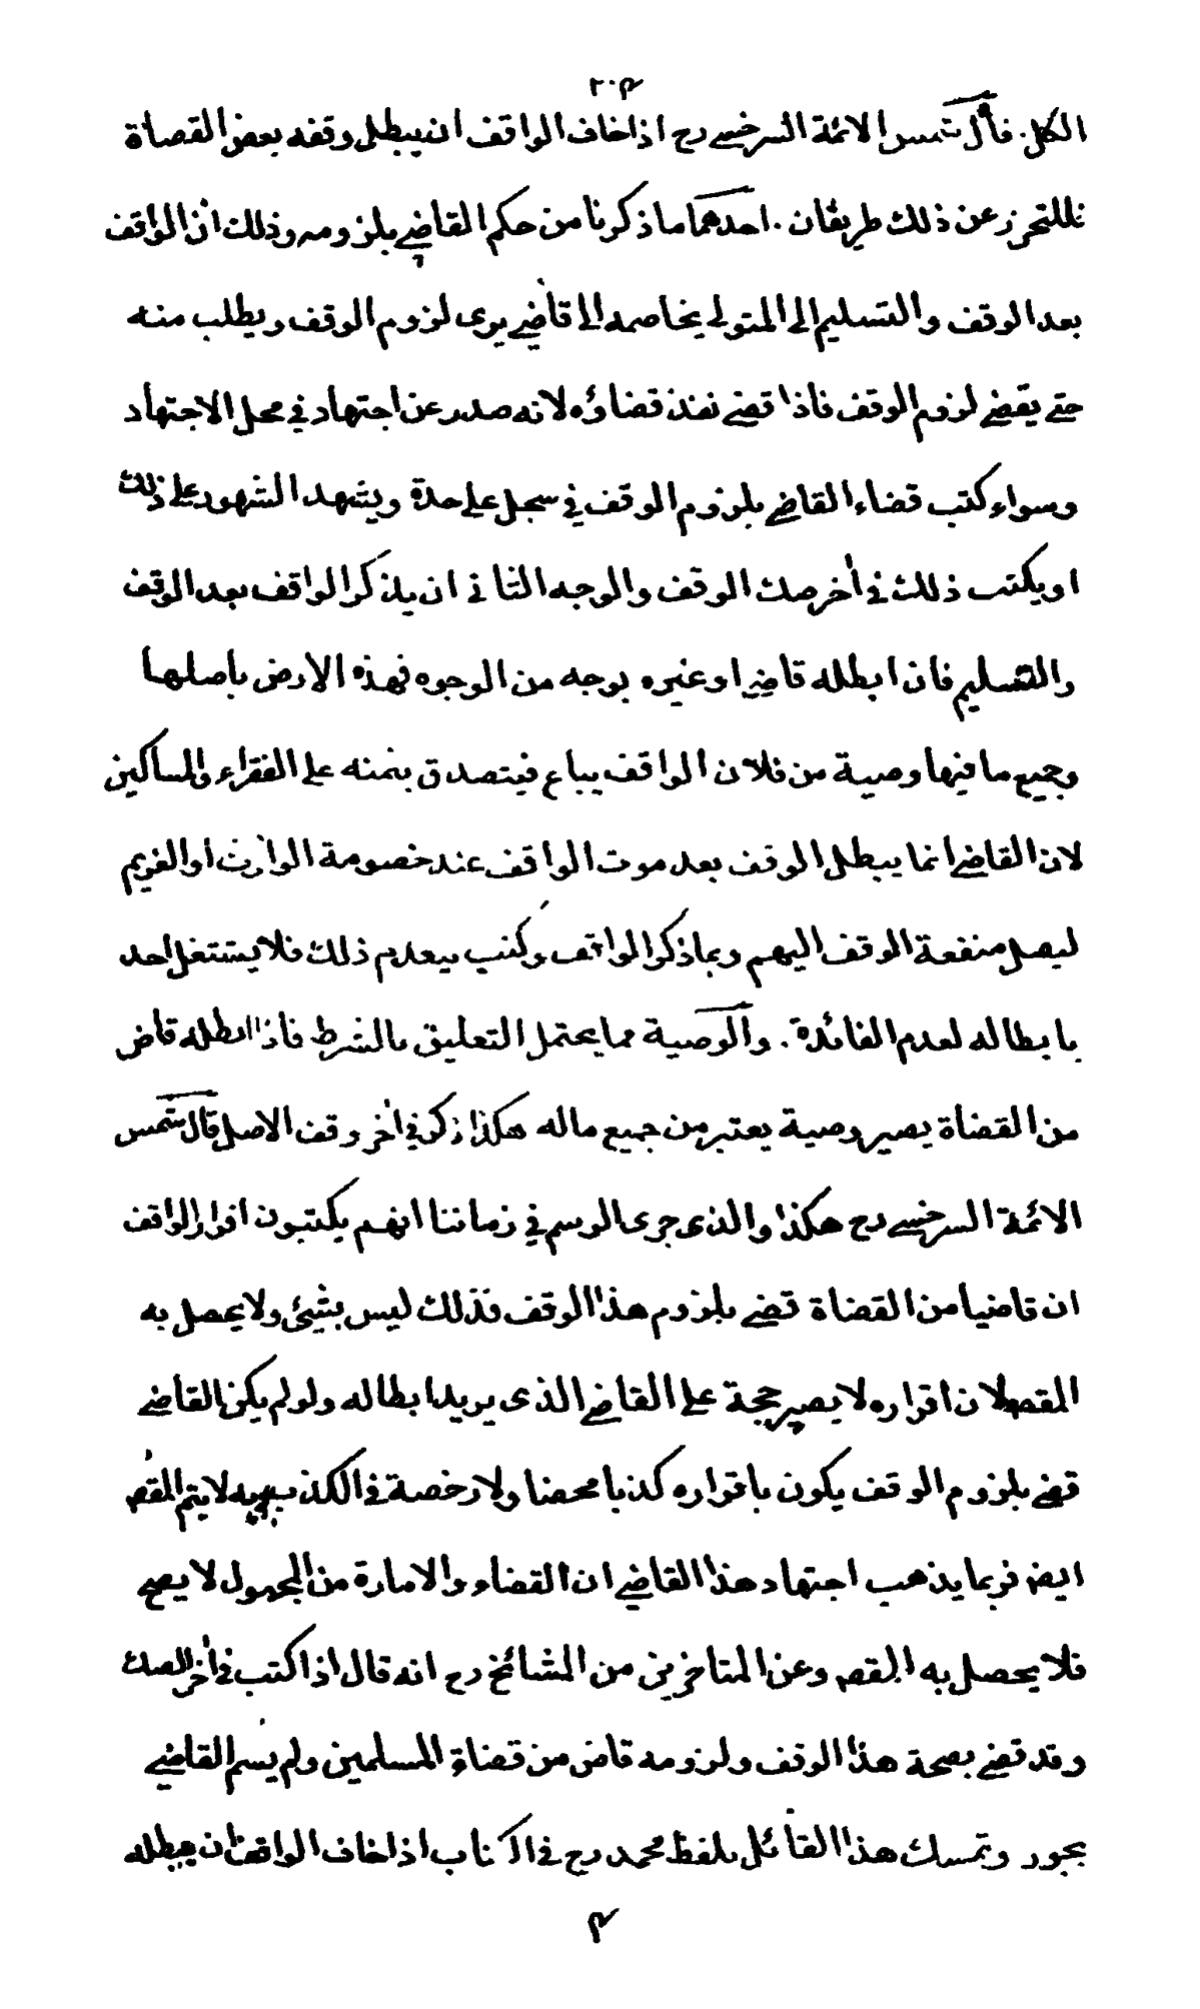 ٢٠٤
الكل. قال شمس الائمة السرخسي رح اذا خاف الواقف ان يبطل وقفه بعض القضاة
فللتحرز عن ذلك طريقان. احدهما ما ذكرنا من حكم القاضي بلزومه وذلك ان الواقف
بعد الوقف والتسليم الى المتولي يخاصمه الى قاضي يرى لزوم الوقف ويطلب منه
حتى يقضي لزوم الوقف فاذا قضى نفذ قضاؤه لانه صدر عن اجتهاد في محل الاجتهاد
وسواء كتب قضاء القاضي بلزوم الوقف في سجل على حدة ويشهد الشهود على ذلك
او يكتب ذلك في أخر صك الوقف والوجه الثاني ان يذكر الواقف بعد الوقف
والتسليم فان ابطله قاضي او غيره بوجه من الوجوه فهذه الارض باصلها
وجميع ما فيها وصية من فلان الواقف يباع فيتصدق بثمنه على الفقراء والمساكين
لان القاضي انما يبطل الوقف بعد موت الواقف عند خصومة الوارث او الغريم
ليصل منفعة الوقف اليهم وبما ذكر الواقف وكتب يعدم ذلك فلا يشتغل احد
بابطاله لعدم الفائدة. والوصية مما يحتمل التعليق بالشرط فاذا ابطله قاض
من القضاة يصير وصية يعتبر من جميع ماله هكذا ذكر في أخر وقف الاصل قال شمس
الائمة السرخسي رح هكذا والذي جرى الرسم في زماننا انهم يكتبون اقرار الواقف
ان قاضيا من القضاة قضى بلزوم هذا الوقف فذلك ليس بشيئ ولا يحصل به
المقصـ لان اقراره لا يصير حجة على القاضي الذي يريد ابطاله ولو لم يكن القاضي
قضى بلزوم الوقف يكون باقراره كذبا محضا ولا رخصة في الكذب وبه لا يتم المقصـ
ايضـ فربما يذهب اجتهاد هذا القاضي ان القضاء والامارة من المجهول لا يصح
فلا يحصل به المقصـ وعن المتاخرين من المشائخ رح انه قال اذا كتب في أخر الصك
وقد قضى بصحة هذا الوقف ولزومه قاض من قضاة المسلمين ولم يسم القاضي
يجوز وتمسك هذا القائل بلفظ محمد رح في الكتاب اذا خاف الواقف ان يبطله